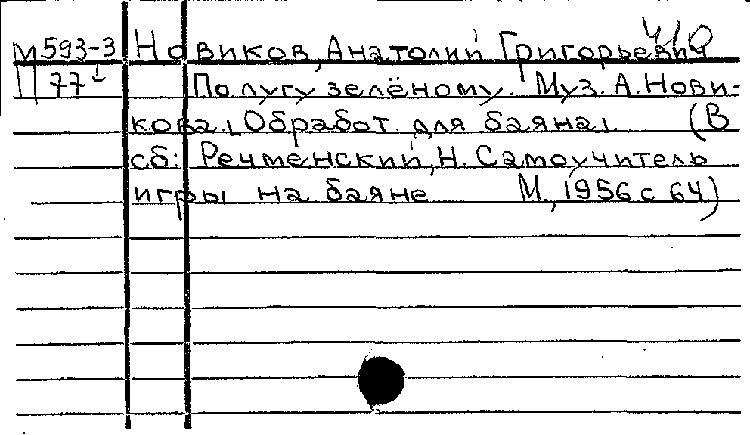 410
М593-3 Новиков, Анатолий Григорьевич
П77 По лугу зелёному. Муз. А. Нови-
кова. [Обработ. для баяна]. (В
сб: Речменский, Н. Самоучитель
игры на баяне М., 1956 с 64)